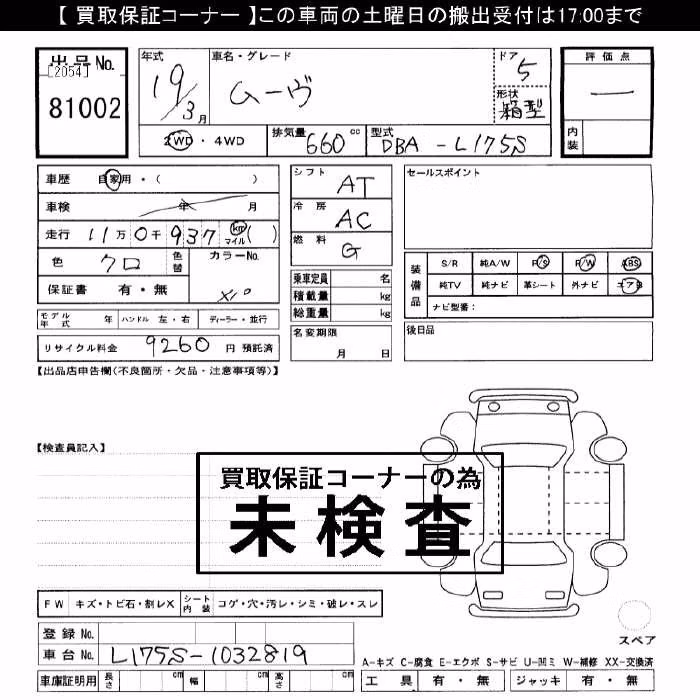 【 買取保証コーナー 】この車両の土曜日の搬出受付は17:00まで
出品No.
[2054]
81002
年式 19/3月
車名・グレード ムーヴ
ドア 5
形状 箱型
2WD・4WD
排気量 660 cc
型式 DBA-L175S
評価点 一
内装
車歴 自家用・( )
車検 年 月
走行 11万0千937 km マイル ( )
色 クロ 色替
カラーNo. X10
保証書 有・無
モデル年式 年 ハンドル 左・右 ディーラー・並行
リサイクル料金 9260 円 預託済
シフト AT
冷房 AC
燃料 G
乗車定員 名
積載量 kg
総重量 kg
名変期限 月 日
セールスポイント
装備品 S/R 純A/W P/S P/W ABS
純TV 純ナビ 革シート 外ナビ エアB
ナビ型番:
後日品
【出品店申告欄(不良箇所・欠品・注意事項等)】
【検査員記入】
買取保証コーナーの為
未検査
FW キズ・トビ石・割レX シート内装 コゲ・穴・汚レ・シミ・破レ・スレ
登録No.
車台No. L175S-1032819
車庫証明用 長さ cm 幅 cm 高さ cm
スペア
A-キズ C-腐食 E-エクボ S-サビ U-凹ミ W-補修 XX-交換済
工具 有・無 ジャッキ 有・無